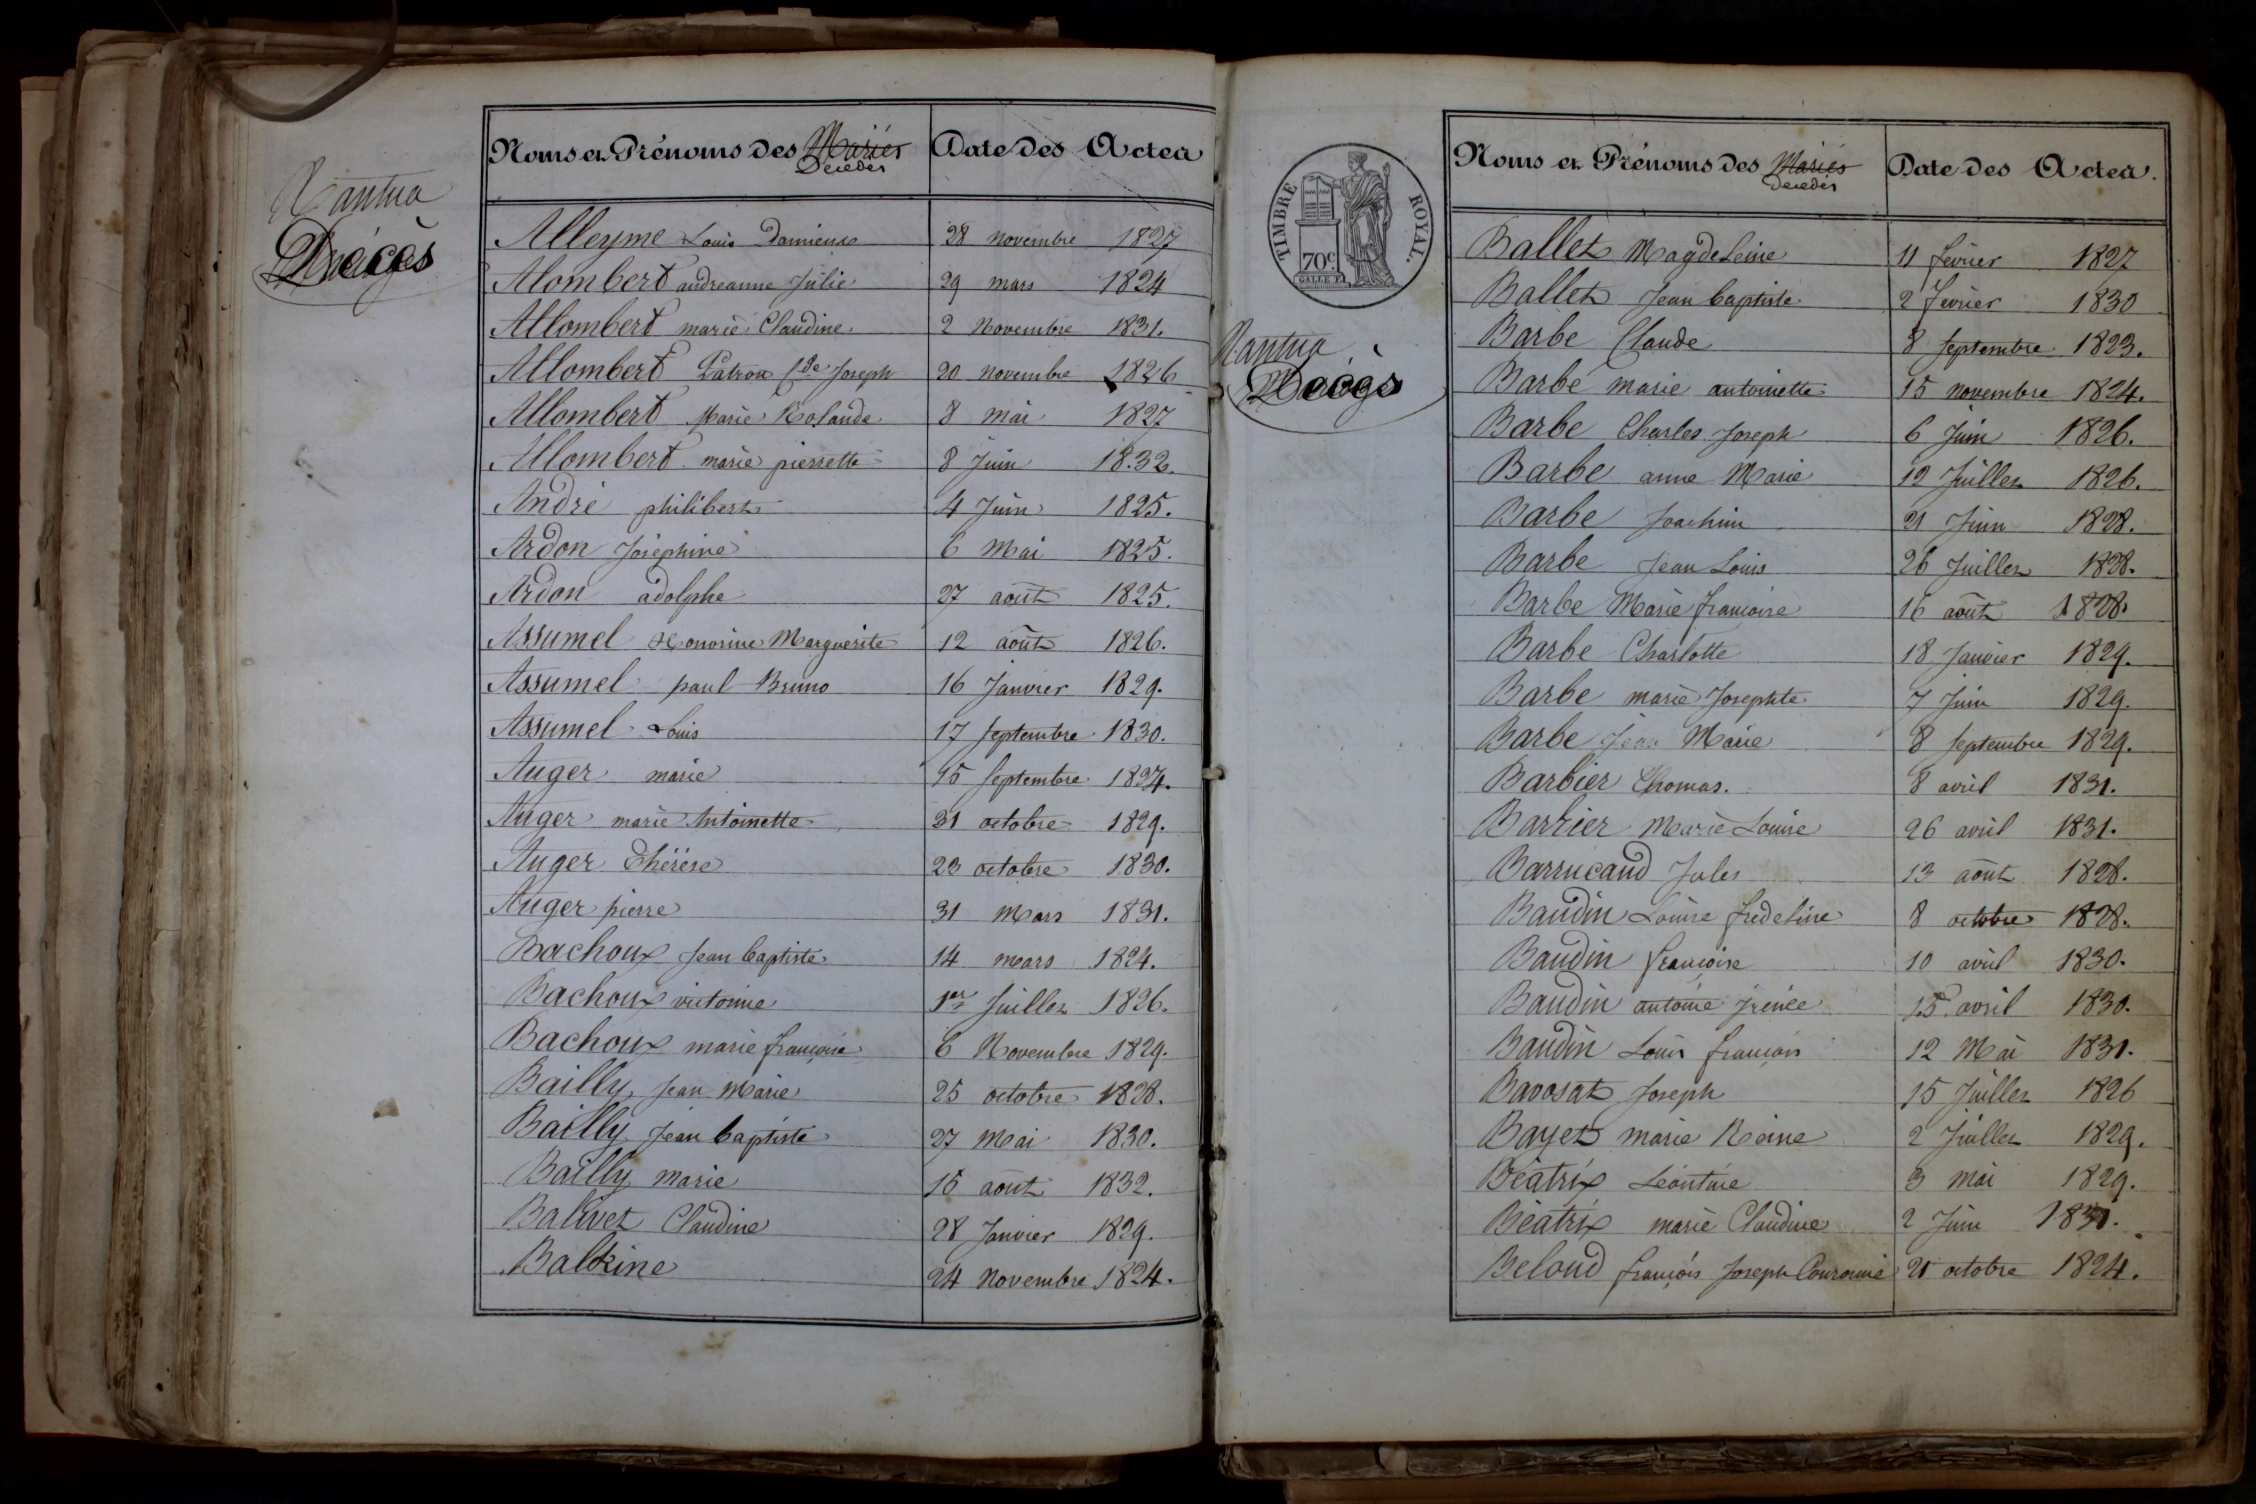 Nantua
Décès
Noms et Prénoms des Mariés Date des Actes
Décédés
Alleyme Louis Damiens 28 novembre 1827
Alombert andréanne Julie 29 mars 1824
Allombert marie Claudine 2 Novembre 1831.
Allombert Patron Cde Joseph 20 novembre 1826
Allombert Marie Rolande 8 mai 1827
Allombert marie pierrette 8 Juin 1832.
André philibert 4 Juin 1825.
Ardon Joséphine 6 Mai 1825.
Ardon adolphe 27 août 1825.
Assumel Honorine Marguerite 12 août 1826.
Assumel paul Bruno 16 Janvier 1829.
Assumel Louis 17 Septembre 1830.
Auger marie 15 Septembre
Auger marie Antoinette 31 octobre 1829.
Auger Thérèse 23 octobre 1830.
Auger pierre 31 Mars 1831.
Bachoux Jean baptiste 14 mars 1824.
Bachoux victorine 1er Juillet 1826.
Bachoux marie françoise 6 Novembre 1829.
Bailly Jean Marie 25 octobre 1828.
Bailly Jean baptiste 27 Mai 1830.
Bailly Marie 15 août 1832.
Balivet Claudine 28 Janvier 1829.
Balkine 24 Novembre 1824.
TIMBRE ROYAL.
70c.
Nantua
Décès
Noms et Prénoms des Mariés Date des Actes.
Décédés
Ballet Magdeleine 11 février 1827
Ballet Jean baptiste 2 février 1830
Barbe Claude 8 Septembre 1823.
Barbe marie antoinette 15 novembre 1824.
Barbe Charles Joseph 6 Juin 1826.
Barbe anne Marie 12 Juillet 1826.
Barbe Joachim 21 Juin 1828.
Barbe Jean Louis 26 Juillet 1828.
Barbe Marie françoise 16 août 1828.
Barbe Charlotte 18 Janvier 1829.
Barbe marie Josephte 7 Juin 1829.
Barbe Jean Marie 8 Septembre 1829.
Barbier Thomas. 8 avril 1831.
Barrier Marie Louise 26 avril 1831.
Barrucand Jules 13 août 1828.
Baudin Louise fredeline 8 octobre 1828.
Baudin françoise 10 avril 1830.
Baudin antoine Irénée 15 avril 1830.
Baudin Louis françois 12 Mai 1831.
Bavosat Joseph 15 Juillet 1826
Bayet marie Reine 2 Juillet 1829.
Béatrix Léontine 3 Mai 1829.
Béatrix marie Claudine 2 Juin 1831.
Beloud françois Joseph Couronné 21 octobre 1824.